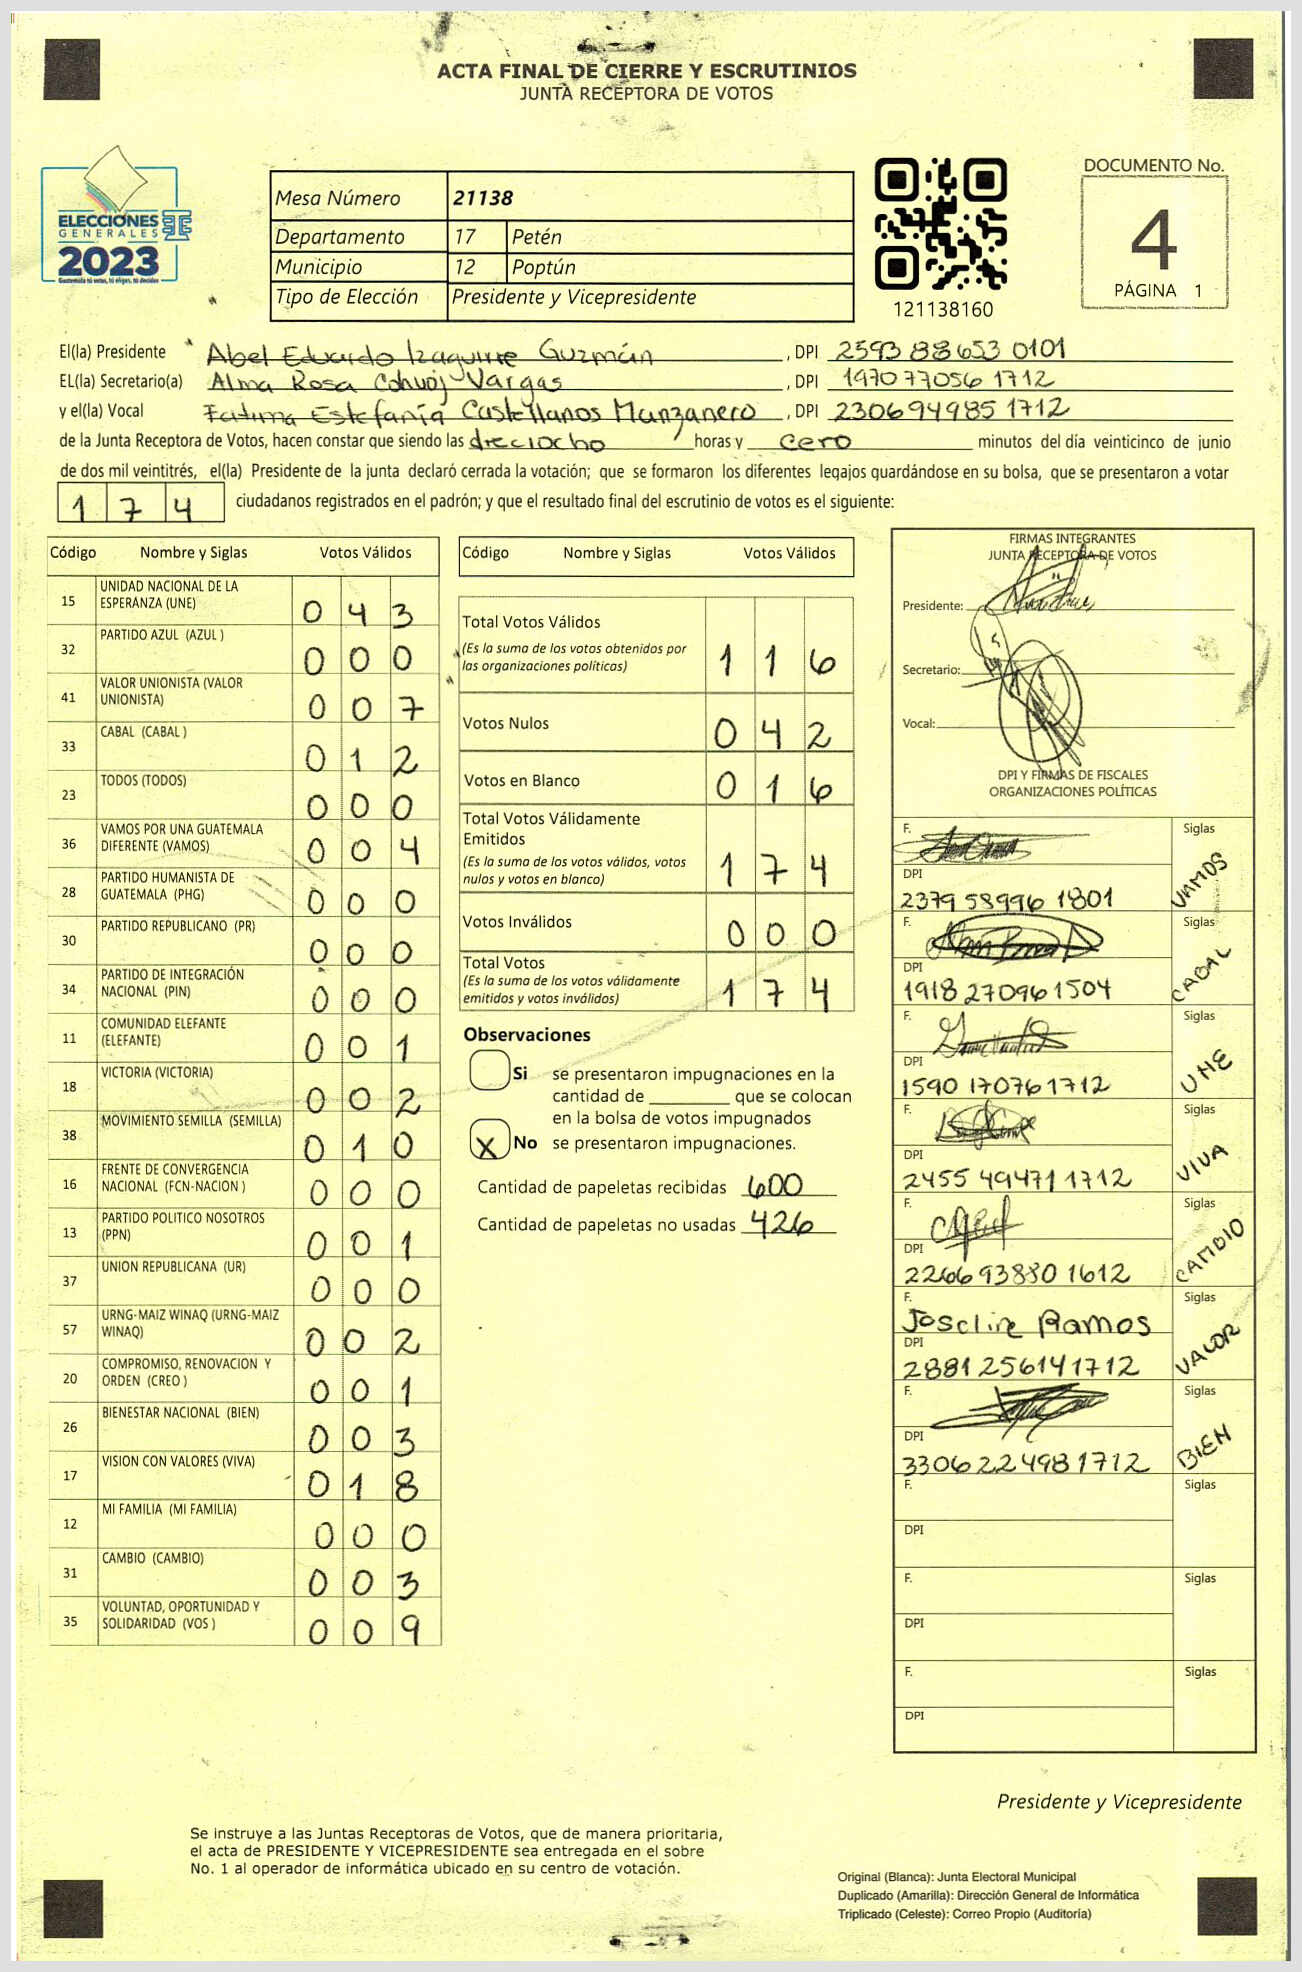 ACTA FINAL DE CIERRE Y ESCRUTINIOS
JUNTA RECEPTORA DE VOTOS
ELECCIONES
GENERALES
2023
Guatemala tú votas, tú eliges, tú decides
Mesa Número 21138
Departamento 17 Petén
Municipio 12 Poptún
Tipo de Elección Presidente y Vicepresidente
121138160
DOCUMENTO No.
4
PÁGINA 1
El(la) Presidente Abel Eduardo Izaguirre Guzmán, DPI 2593 88653 0101
EL(la) Secretario(a) Alma Rosa Cohuoj Vargas, DPI 1970 77056 1712
y el(la) Vocal Fatima Estefanía Castellanos Manzanero, DPI 2306 94985 1712
de la Junta Receptora de Votos, hacen constar que siendo las dieciocho horas y cero minutos del día veinticinco de junio
de dos mil veintitrés, el(la) Presidente de la junta declaró cerrada la votación; que se formaron los diferentes legajos guardándose en su bolsa, que se presentaron a votar
174 ciudadanos registrados en el padrón; y que el resultado final del escrutinio de votos es el siguiente:
Código Nombre y Siglas Votos Válidos
15 UNIDAD NACIONAL DE LA ESPERANZA (UNE) 043
32 PARTIDO AZUL (AZUL ) 000
41 VALOR UNIONISTA (VALOR UNIONISTA) 007
33 CABAL (CABAL ) 012
23 TODOS (TODOS) 000
36 VAMOS POR UNA GUATEMALA DIFERENTE (VAMOS) 004
28 PARTIDO HUMANISTA DE GUATEMALA (PHG) 000
30 PARTIDO REPUBLICANO (PR) 000
34 PARTIDO DE INTEGRACIÓN NACIONAL (PIN) 000
11 COMUNIDAD ELEFANTE (ELEFANTE) 001
18 VICTORIA (VICTORIA) 002
38 MOVIMIENTO SEMILLA (SEMILLA) 010
16 FRENTE DE CONVERGENCIA NACIONAL (FCN-NACION ) 000
13 PARTIDO POLITICO NOSOTROS (PPN) 001
37 UNION REPUBLICANA (UR) 000
57 URNG-MAIZ WINAQ (URNG-MAIZ WINAQ) 002
20 COMPROMISO, RENOVACION Y ORDEN (CREO ) 001
26 BIENESTAR NACIONAL (BIEN) 003
17 VISION CON VALORES (VIVA) 018
12 MI FAMILIA (MI FAMILIA) 000
31 CAMBIO (CAMBIO) 003
35 VOLUNTAD, OPORTUNIDAD Y SOLIDARIDAD (VOS ) 009
Código Nombre y Siglas Votos Válidos
Total Votos Válidos
(Es la suma de los votos obtenidos por
las organizaciones políticas) 116
Votos Nulos 042
Votos en Blanco 016
Total Votos Válidamente
Emitidos
(Es la suma de los votos válidos, votos
nulos y votos en blanco) 174
Votos Inválidos 000
Total Votos
(Es la suma de los votos válidamente
emitidos y votos inválidos) 174
Observaciones
Si se presentaron impugnaciones en la
cantidad de ________ que se colocan
en la bolsa de votos impugnados
X No se presentaron impugnaciones.
Cantidad de papeletas recibidas 600
Cantidad de papeletas no usadas 426
FIRMAS INTEGRANTES
JUNTA RECEPTORA DE VOTOS
Presidente:
Secretario:
Vocal:
DPI Y FIRMAS DE FISCALES
ORGANIZACIONES POLÍTICAS
F. Siglas VAMOS
DPI
2379 58996 1801
F. Siglas CABAL
DPI
1918 27096 1504
F. Siglas UNE
DPI
1590 17076 1712
F. Siglas VIVA
DPI
2455 49471 1712
F. Siglas CAMBIO
DPI
2266 93880 1612
F. Siglas VALOR
Ramos
DPI
2881 25614 1712
F. Siglas BIEN
DPI
3306 22498 1712
F. Siglas
DPI
F. Siglas
DPI
F. Siglas
DPI
Presidente y Vicepresidente
Se instruye a las Juntas Receptoras de Votos, que de manera prioritaria,
el acta de PRESIDENTE Y VICEPRESIDENTE sea entregada en el sobre
No. 1 al operador de informática ubicado en su centro de votación.
Original (Blanca): Junta Electoral Municipal
Duplicado (Amarilla): Dirección General de Informática
Triplicado (Celeste): Correo Propio (Auditoría)